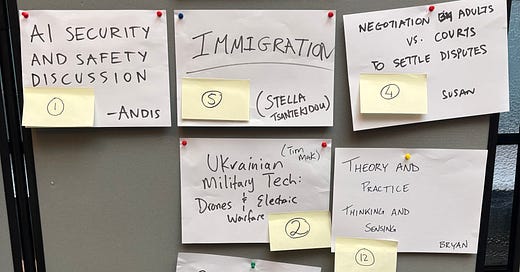 AI SECURITY
AND SAFETY
DISCUSSION
-ANDIS
1
IMMIGRATION
(STELLA
TSANTEKIDOU)
5
NEGOTIATION BY ADULTS
VS. COURTS
TO SETTLE DISPUTES
SUSAN
4
(Tim
Mak)
Ukrainian
Military Tech:
Drones & Electric
Warfare
2
THEORY AND
PRACTICE
THINKING AND
SENSING
BRYAN
12